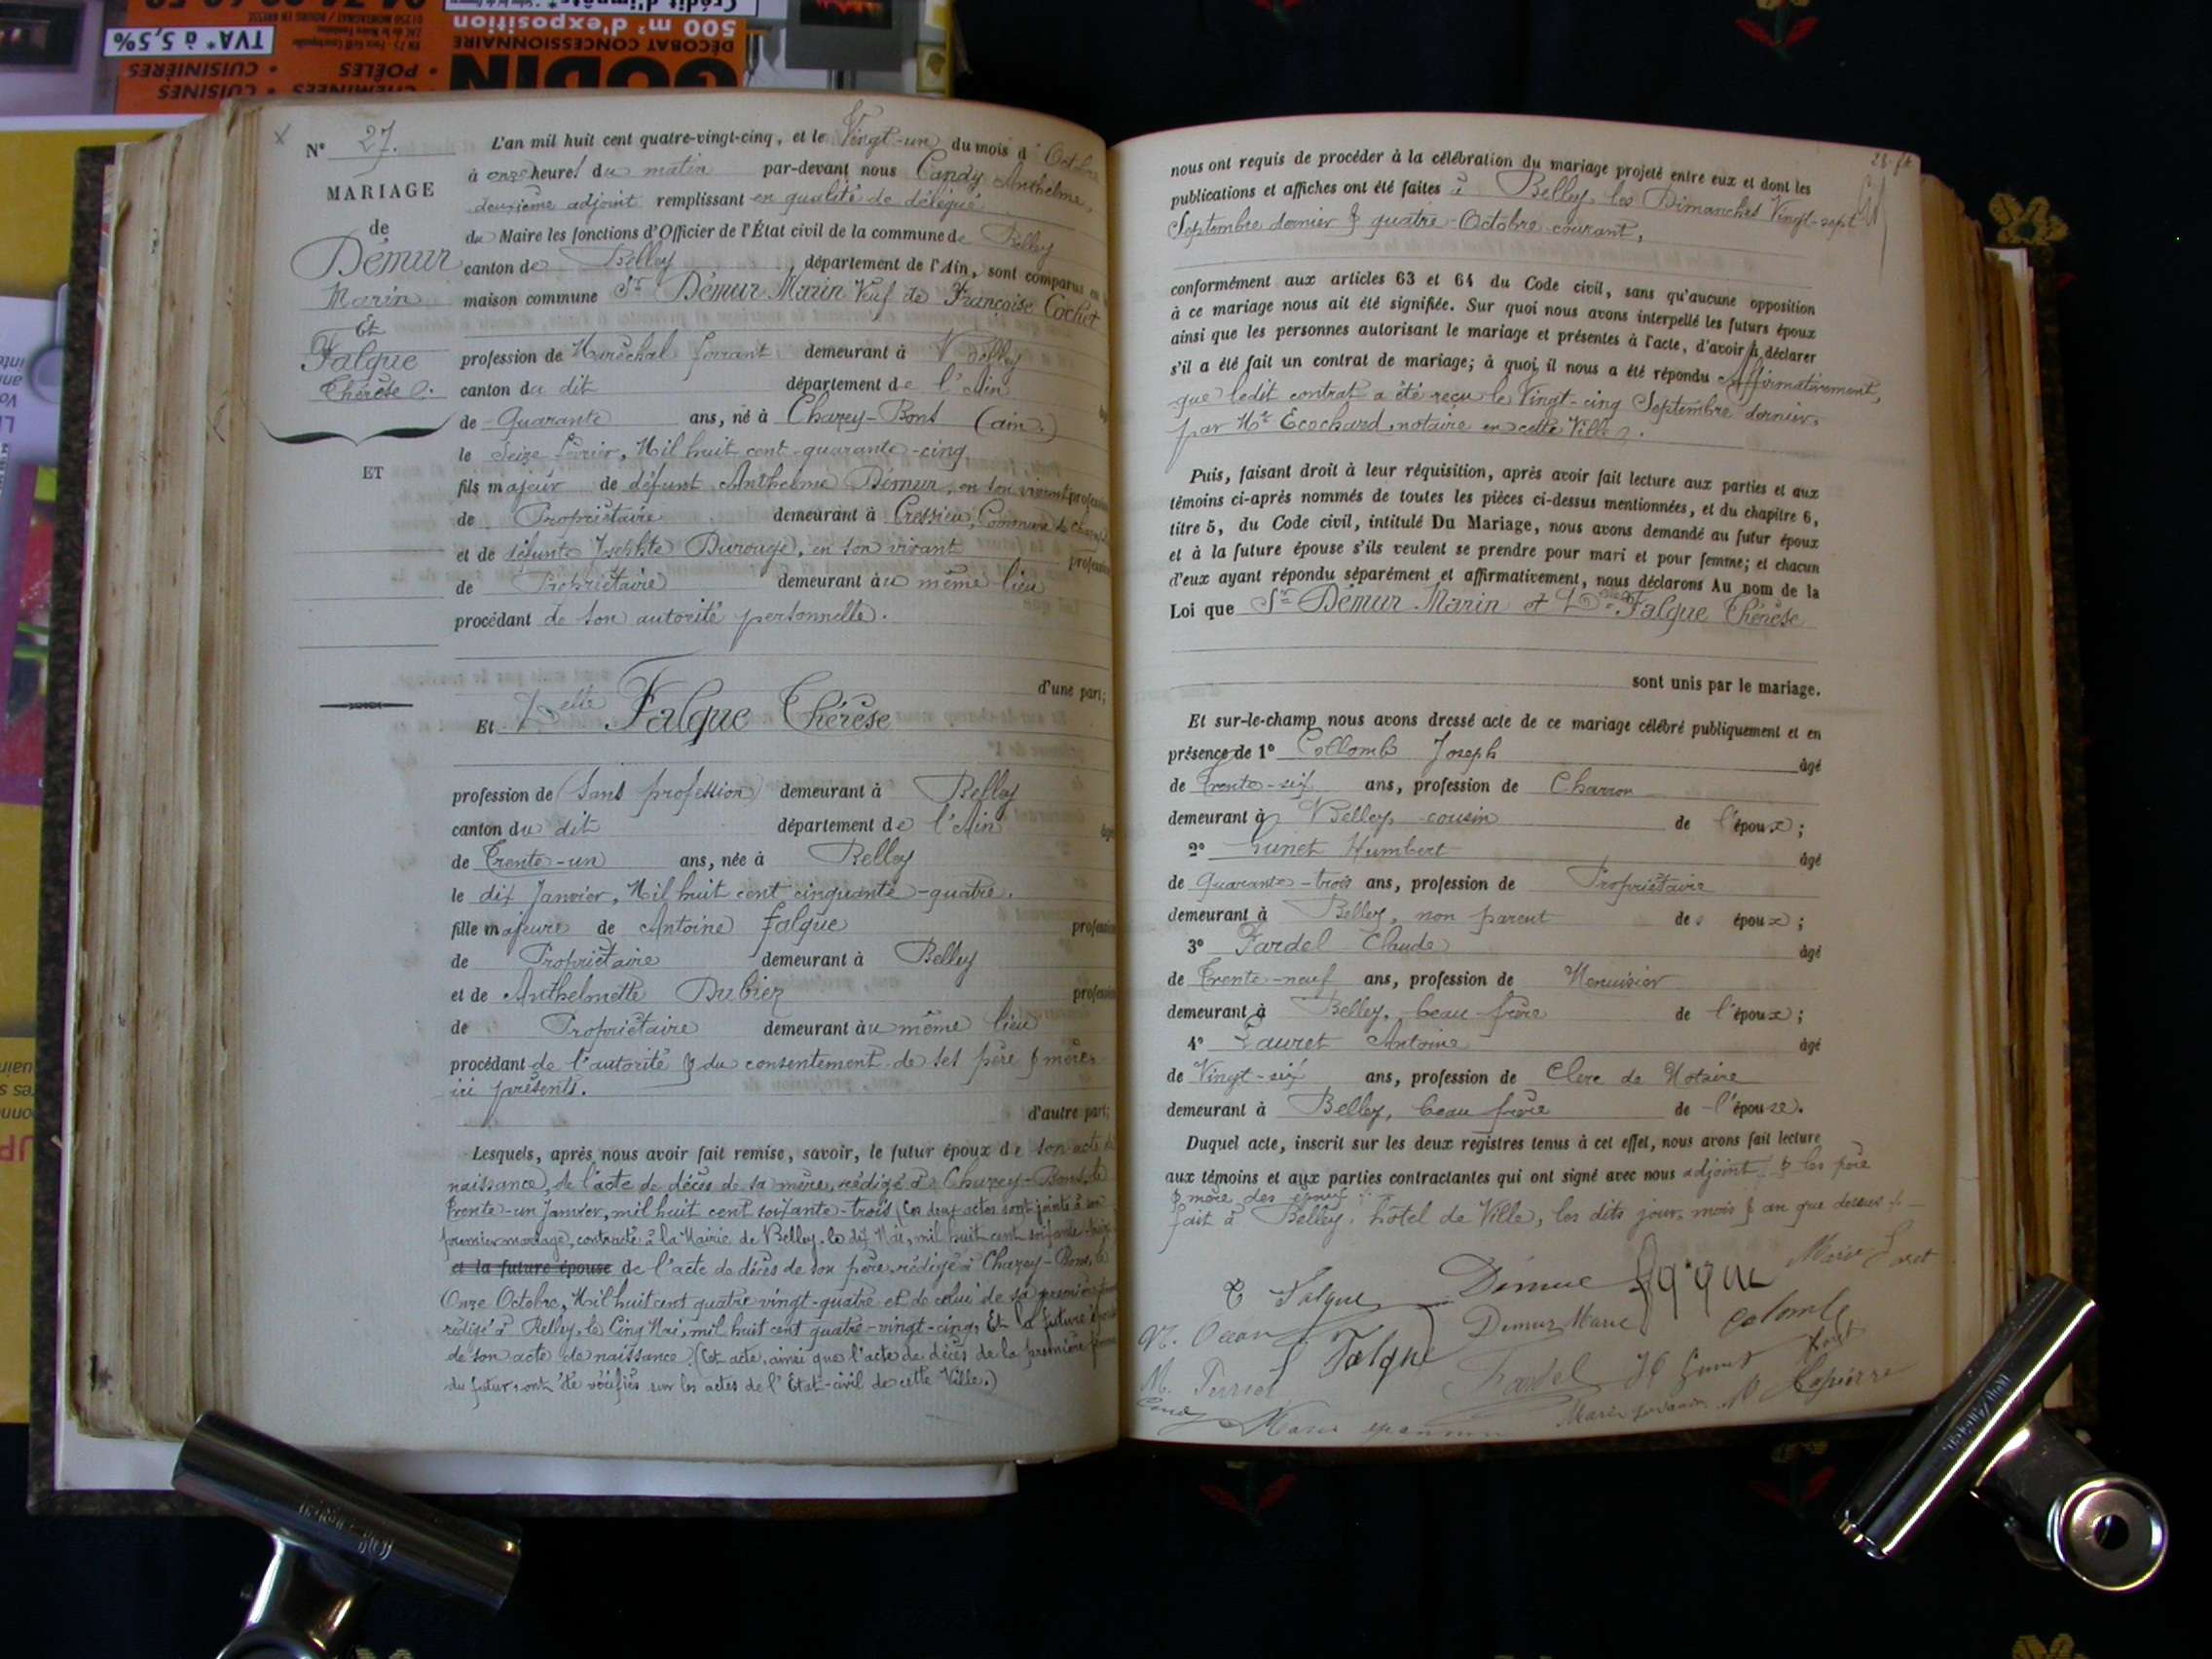 Crédit d'impôts*
500 m² d'exposition
DÉCOBAT CONCESSIONNAIRE
GODIN
TVA* à 5,5%
POÊLES • CUISINIÈRES
CHEMINÉES • CUISINES
N° 27.
MARIAGE
de
Démur
Marin
Et
Falque
Thérèse
ET
L'an mil huit cent quatre-vingt-cinq, et le Vingt-un du mois d'Octobre
à onze heures du matin par-devant nous Candy Anthelme,
deuxième adjoint remplissant en qualité de délégué
du Maire les fonctions d'Officier de l'État civil de la commune de Belley
canton de Belley département de l'Ain, sont comparus en la
maison commune Sr Démur Marin Veuf de Françoise Cochet
profession de Maréchal ferrant demeurant à Belley
canton du dit département de l'Ain
de Quarante ans, né à Chazey-Bons (ain)
le Seize février, Mil huit cent quarante-cinq
fils majeur de défunt Anthelme Démur, en son vivant profession
de Propriétaire demeurant à Cressieu, Commune de Chazey
et de défunte Josephte Durouge, en son vivant profession
de Propriétaire demeurant au même lieu
procédant de son autorité personnelle.
d'une part;
Et Delle Falque Thérèse
profession de (Sans profession) demeurant à Belley
canton du dit département de l'Ain âgé
de Trente-un ans, née à Belley
le dix Janvier, Mil huit cent cinquante-quatre.
fille majeure de Antoine Falque profession
de Propriétaire demeurant à Belley
et de Anthelmette Dubiez profession
de Propriétaire demeurant au même lieu
procédant de l'autorité & du consentement de ses père & mère
ici présents.
d'autre part;
Lesquels, après nous avoir fait remise, savoir, le futur époux de son acte de
naissance, de l'acte de décès de sa mère, rédigé à Chazey-Bons, le
trente-un Janvier, mil huit cent soixante-trois (Ces deux actes sont joints à son
premier mariage, contracté à la Mairie de Belley, le dix Mai, mil huit cent soixante-treize
et la future épouse de l'acte de décès de son père, rédigé à Chazey-Bons, le
Onze Octobre, Mil huit cent quatre vingt-quatre et de celui de sa première femme
rédigé à Belley, le Cinq Mai, mil huit cent quatre-vingt-cinq, Et la future épouse
de son acte de naissance. (Cet acte, ainsi que l'acte de décès de la première femme
du futur, ont été vérifiés sur les actes de l'Etat-civil de cette Ville.)
nous ont requis de procéder à la célébration du mariage projeté entre eux et dont les
publications et affiches ont été faites à Belley, les Dimanches Vingt-sept
Septembre dernier & quatre Octobre courant,
conformément aux articles 63 et 64 du Code civil, sans qu'aucune opposition
à ce mariage nous ait été signifiée. Sur quoi nous avons interpellé les futurs époux
ainsi que les personnes autorisant le mariage et présentes à l'acte, d'avoir à déclarer
s'il a été fait un contrat de mariage; à quoi il nous a été répondu Affirmativement,
que ledit contrat a été reçu le Vingt-cinq Septembre dernier,
par Me Ecochard, notaire en cette Ville.
Puis, faisant droit à leur réquisition, après avoir fait lecture aux parties et aux
témoins ci-après nommés de toutes les pièces ci-dessus mentionnées, et du chapitre 6,
titre 5, du Code civil, intitulé Du Mariage, nous avons demandé au futur époux
et à la future épouse s'ils veulent se prendre pour mari et pour femme; et chacun
d'eux ayant répondu séparément et affirmativement, nous déclarons Au nom de la
Loi que Sr Démur Marin et Delle Falque Thérèse
sont unis par le mariage.
Et sur-le-champ nous avons dressé acte de ce mariage célébré publiquement et en
présence de 1° Collomb Joseph âgé
de Trente-six ans, profession de Charron
demeurant à Belley, cousin de l'époux;
2° Gunet Humbert âgé
de Quarante-trois ans, profession de Propriétaire
demeurant à Belley, non parent des époux;
3° Fardel Claude âgé
de Trente-neuf ans, profession de Menuisier
demeurant à Belley, beau frère de l'époux;
4° Lauret Antoine âgé
de Vingt-six ans, profession de Clerc de Notaire
demeurant à Belley, beau frère de l'épouse.
Duquel acte, inscrit sur les deux registres tenus à cet effet, nous avons fait lecture
aux témoins et aux parties contractantes qui ont signé avec nous adjoint, & les père
& mère des époux
fait à Belley, hôtel de Ville, les dits jour, mois & an que dessus
T Falque Démur Falque
Demur Marie colomb
Falque Fardel